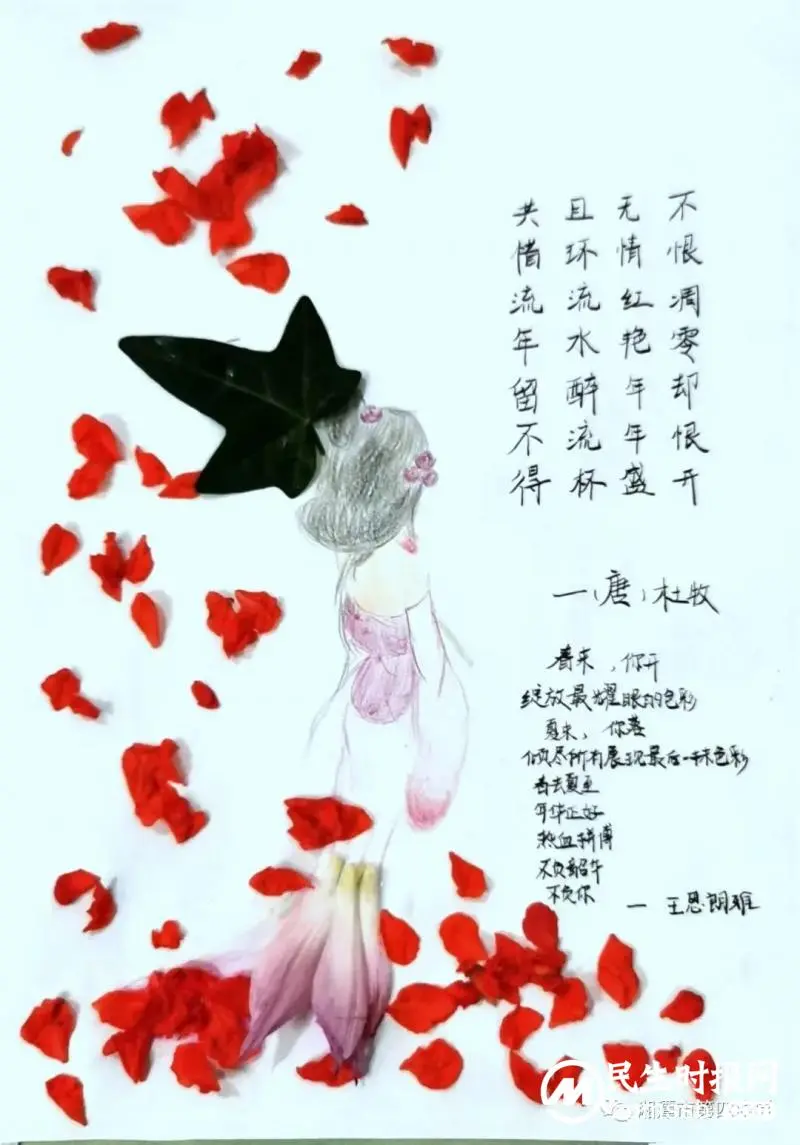 共惜流年留不得
且环流水醉流杯
无情红艳年年盛
不恨凋零却恨开
—(唐)杜牧
春来,你开
绽放最耀眼的色彩
夏末,你落
倾尽所有展现最后一抹色彩
春去夏至
年华正好
热血拼搏
不负韶华
不负你
— 王恩朗
民生时报网
湘潭市第四